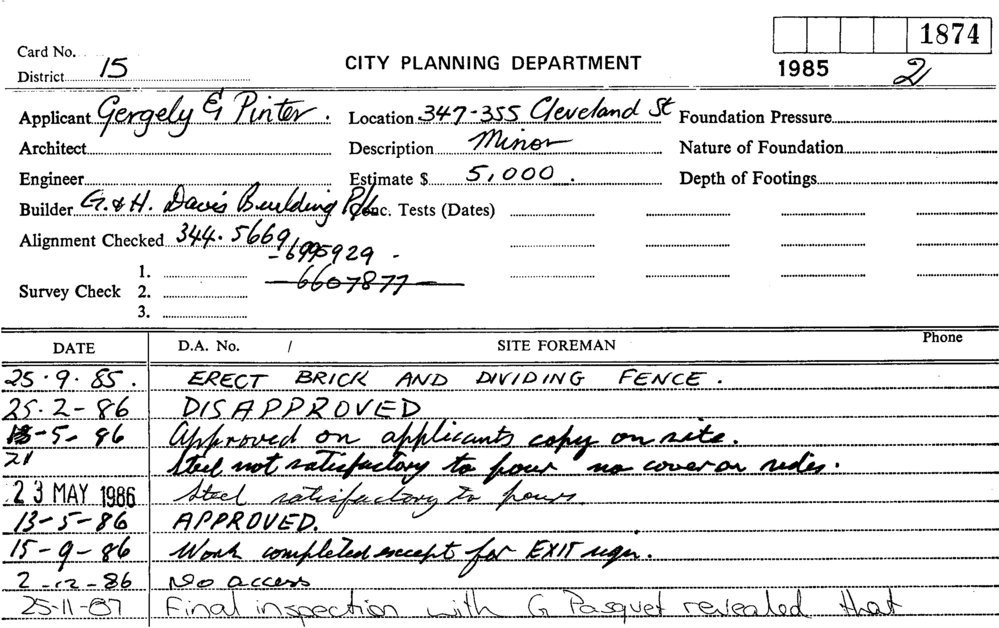 1874
Card No.
District 15
CITY PLANNING DEPARTMENT
1985 2
Applicant Gergely & Pinter. Location 347-355 Cleveland St Foundation Pressure
Architect Description Minor Nature of Foundation
Engineer Estimate $ 5,000. Depth of Footings
Builder G. & H. Davis Building P/L Conc. Tests (Dates)
Alignment Checked 344.5669
6995929 -
6607877
Survey Check 1.
2.
3.
DATE D.A. No. / SITE FOREMAN Phone
25.9.85. ERECT BRICK AND DIVIDING FENCE.
25.2-86 DISAPPROVED
-5-86 Approved on applicants copy on site.
21 Steel not satisfactory to pour no cover on sides.
23 MAY 1986 Steel satisfactory to pour
13-5-86 APPROVED.
15-9-86 Work completed except for EXIT sign.
2-12-86 No access
25-11-87 Final inspection with G Pasquet revealed that